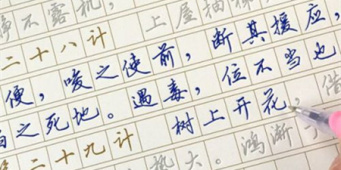 不露机，上屋抽梯
二十八计
便，唆之使前，断其援应，
之死地。遇毒，位不当也
二十九计 树上开花，借
势大。鸿渐